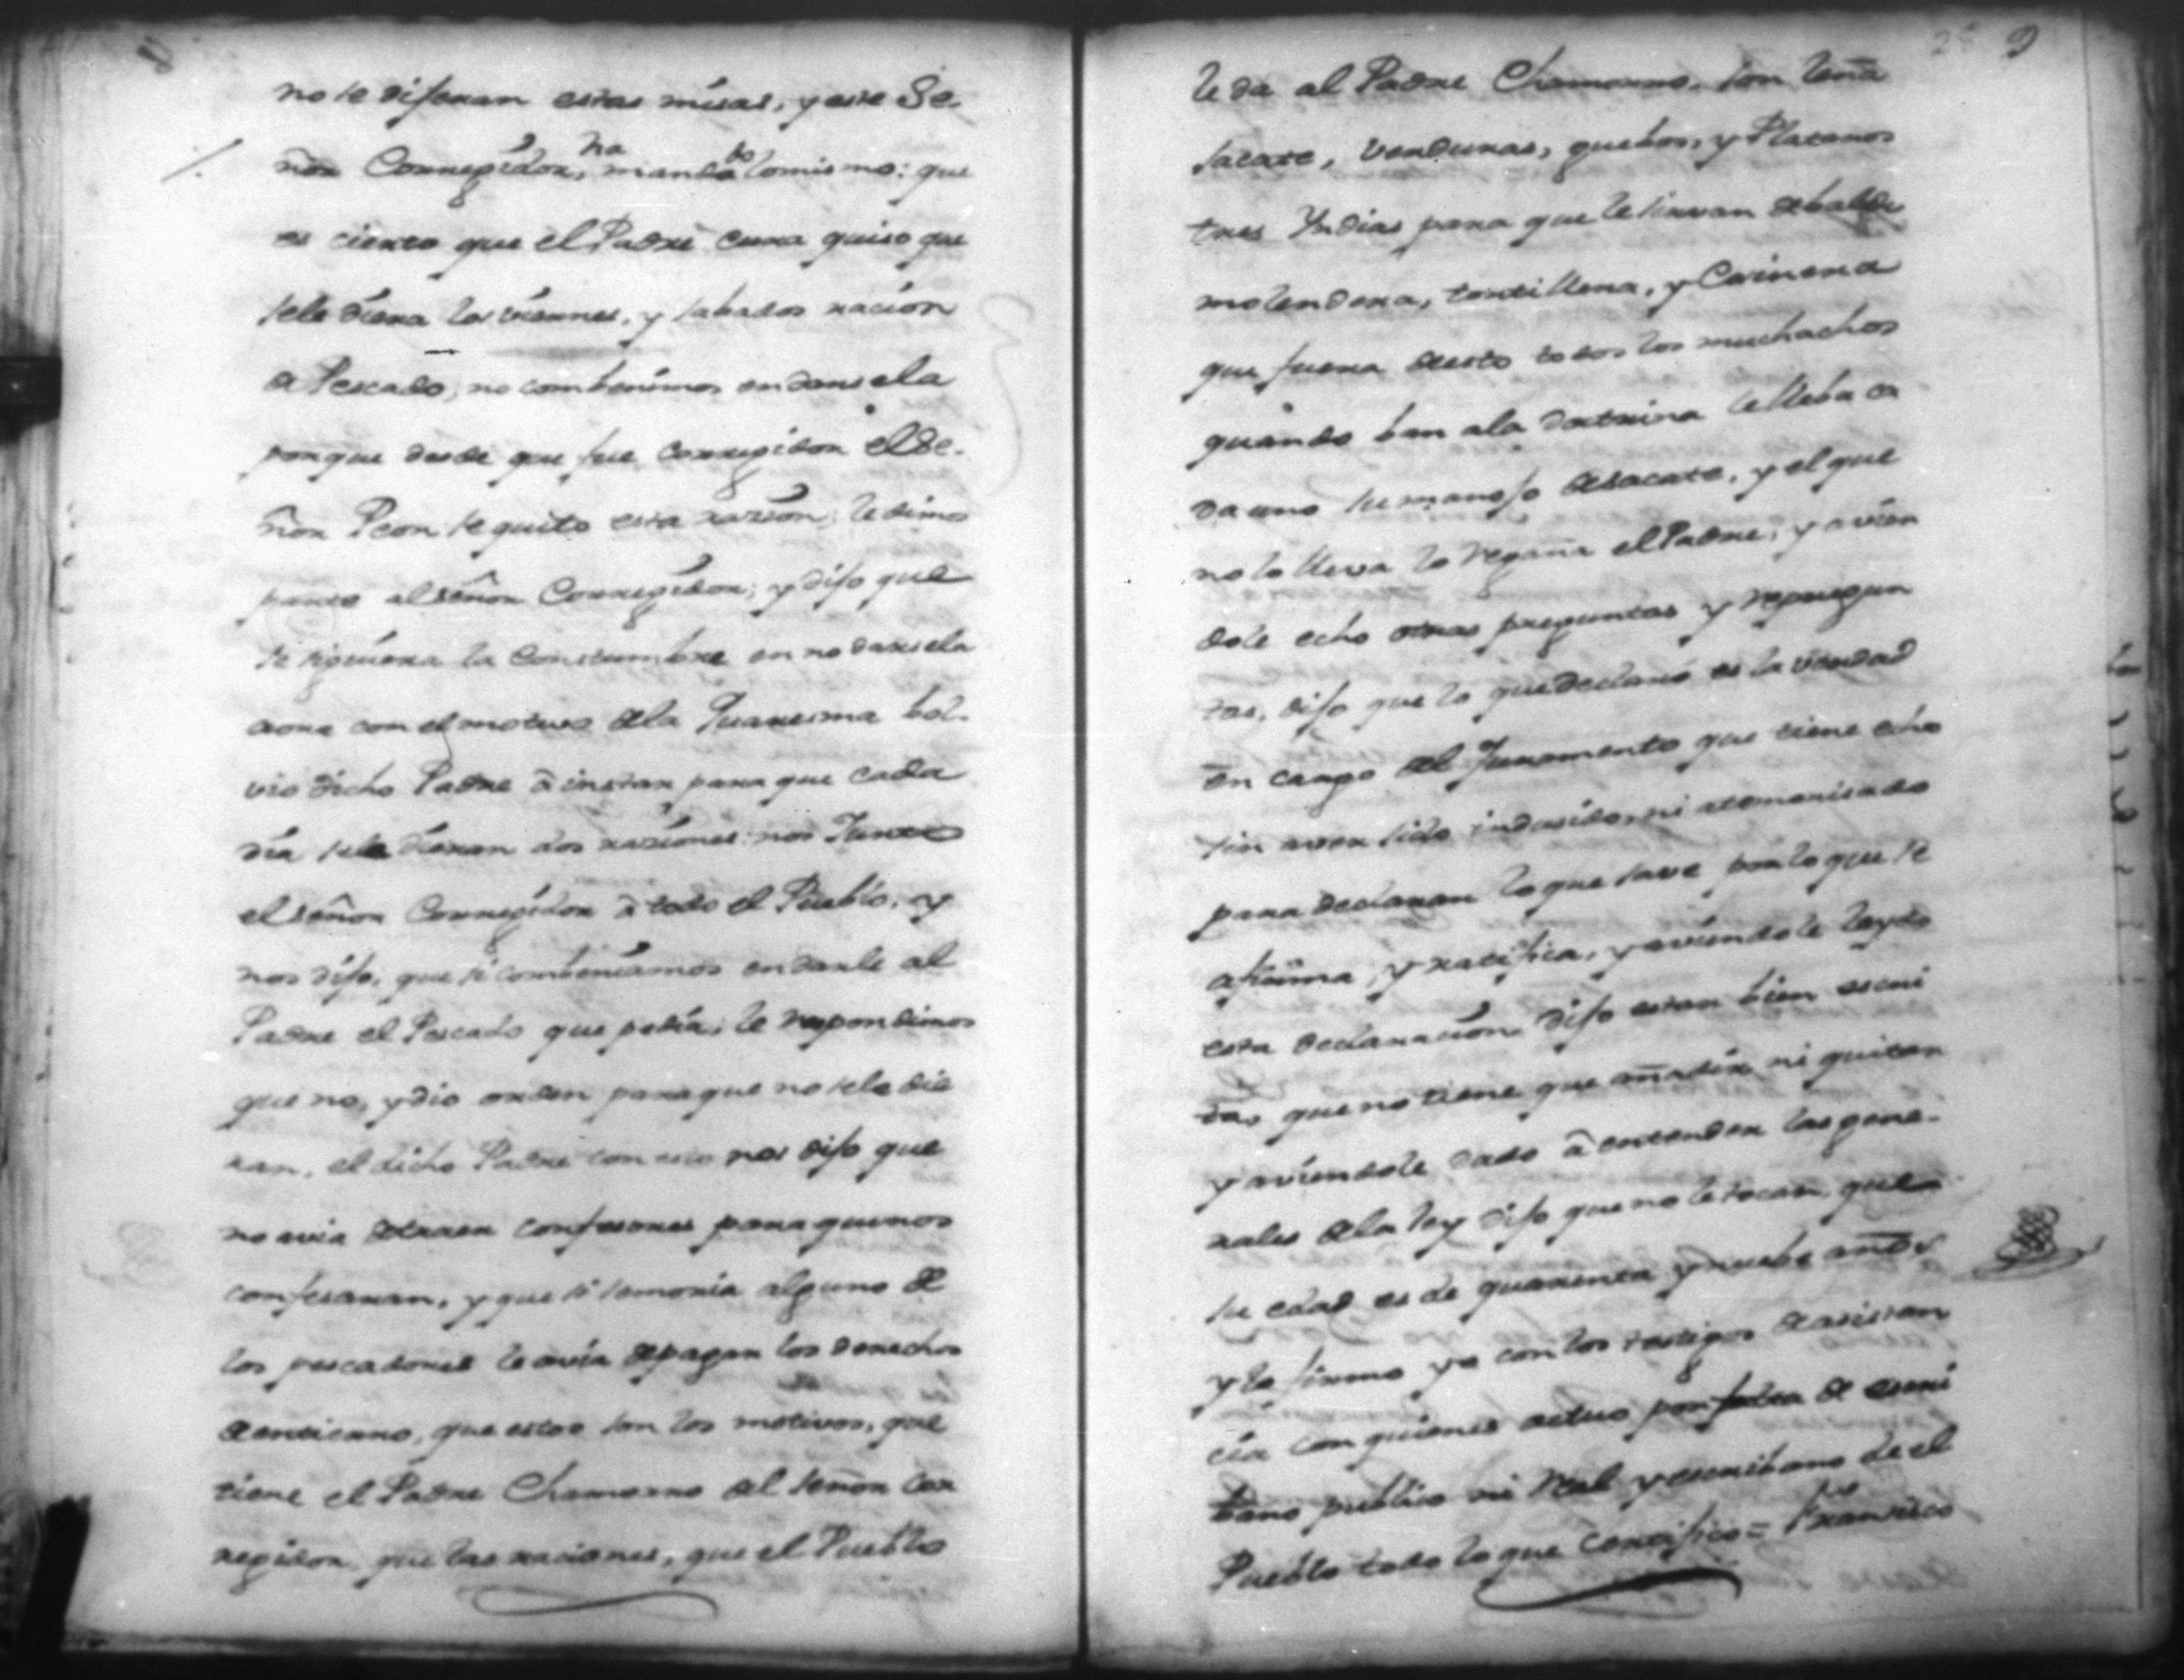 no se dijeran estas misas, y este Se-
ñor Corregidor, ha mandado lo mismo: que
es cierto que el Padre Cura quiso que
sele diera los viernes, y sabados racion
de Pescado, no combenimos en darsela
porque desde que fue Corregidor el Se-
ñor Peon se quito esta razion, le dimos
parte al señor Corregidor; y dijo que
se siguiera la Constumbre en no darsela
aora con el motivo de la Quaresma bol-
vio dicho Padre à instar para que cada
dia sele dieran dos raziones: nos Junto
el señor Corregidor à todo el Pueblo, y
nos dijo, que si combeniamos en darle al
Padre el Pescado que pedia; le respondimos
que no, y dio orden para que no sela die
ran, el dicho Padre con esto nos dijo que
no avia de traer confesores para que nos
confesaran, y que si se moria alguno de
los pescadores le avia de pagar los derechos
de entierro, que estos son los motivos, que
tiene el Padre Chamorro del señor Cor
regidor, que las raciones, que el Pueblo
25 9
le da al Padre Chamorro, son leña
sacate, verduras, guebos, y Platanos
tres Yndias para que le sirvan debalde
molendera, tortillera, y Cosinera
que fuera deesto todos los muchachos
quando ban ala doctrina le lleba ca
da uno su manojo desacate, y el que
no lo lleva lo regaña el Padre, y avien
dole echo otras preguntas y repregun
tas, dijo que lo que declaró es la verdad
en cargo del Juramento que tiene echo
sin aver sido indusido, ni atemorisado
para declarar lo que save por lo que se
afirma, y ratifica, y aviendole leydo
esta declaracion dijo estar bien escri
ta, que no tiene que añadir, ni quitar
y aviendole dado à entender las gene-
rales de la ley dijo que no le tocan, que
su edad es de quarenta y nuebe años
y lo firmo yo con los testigos de asisten
cia con quienes actuo por falta de escri
bano publico ni Real y escribano de el
Pueblo todo lo que Certifico = Francisco